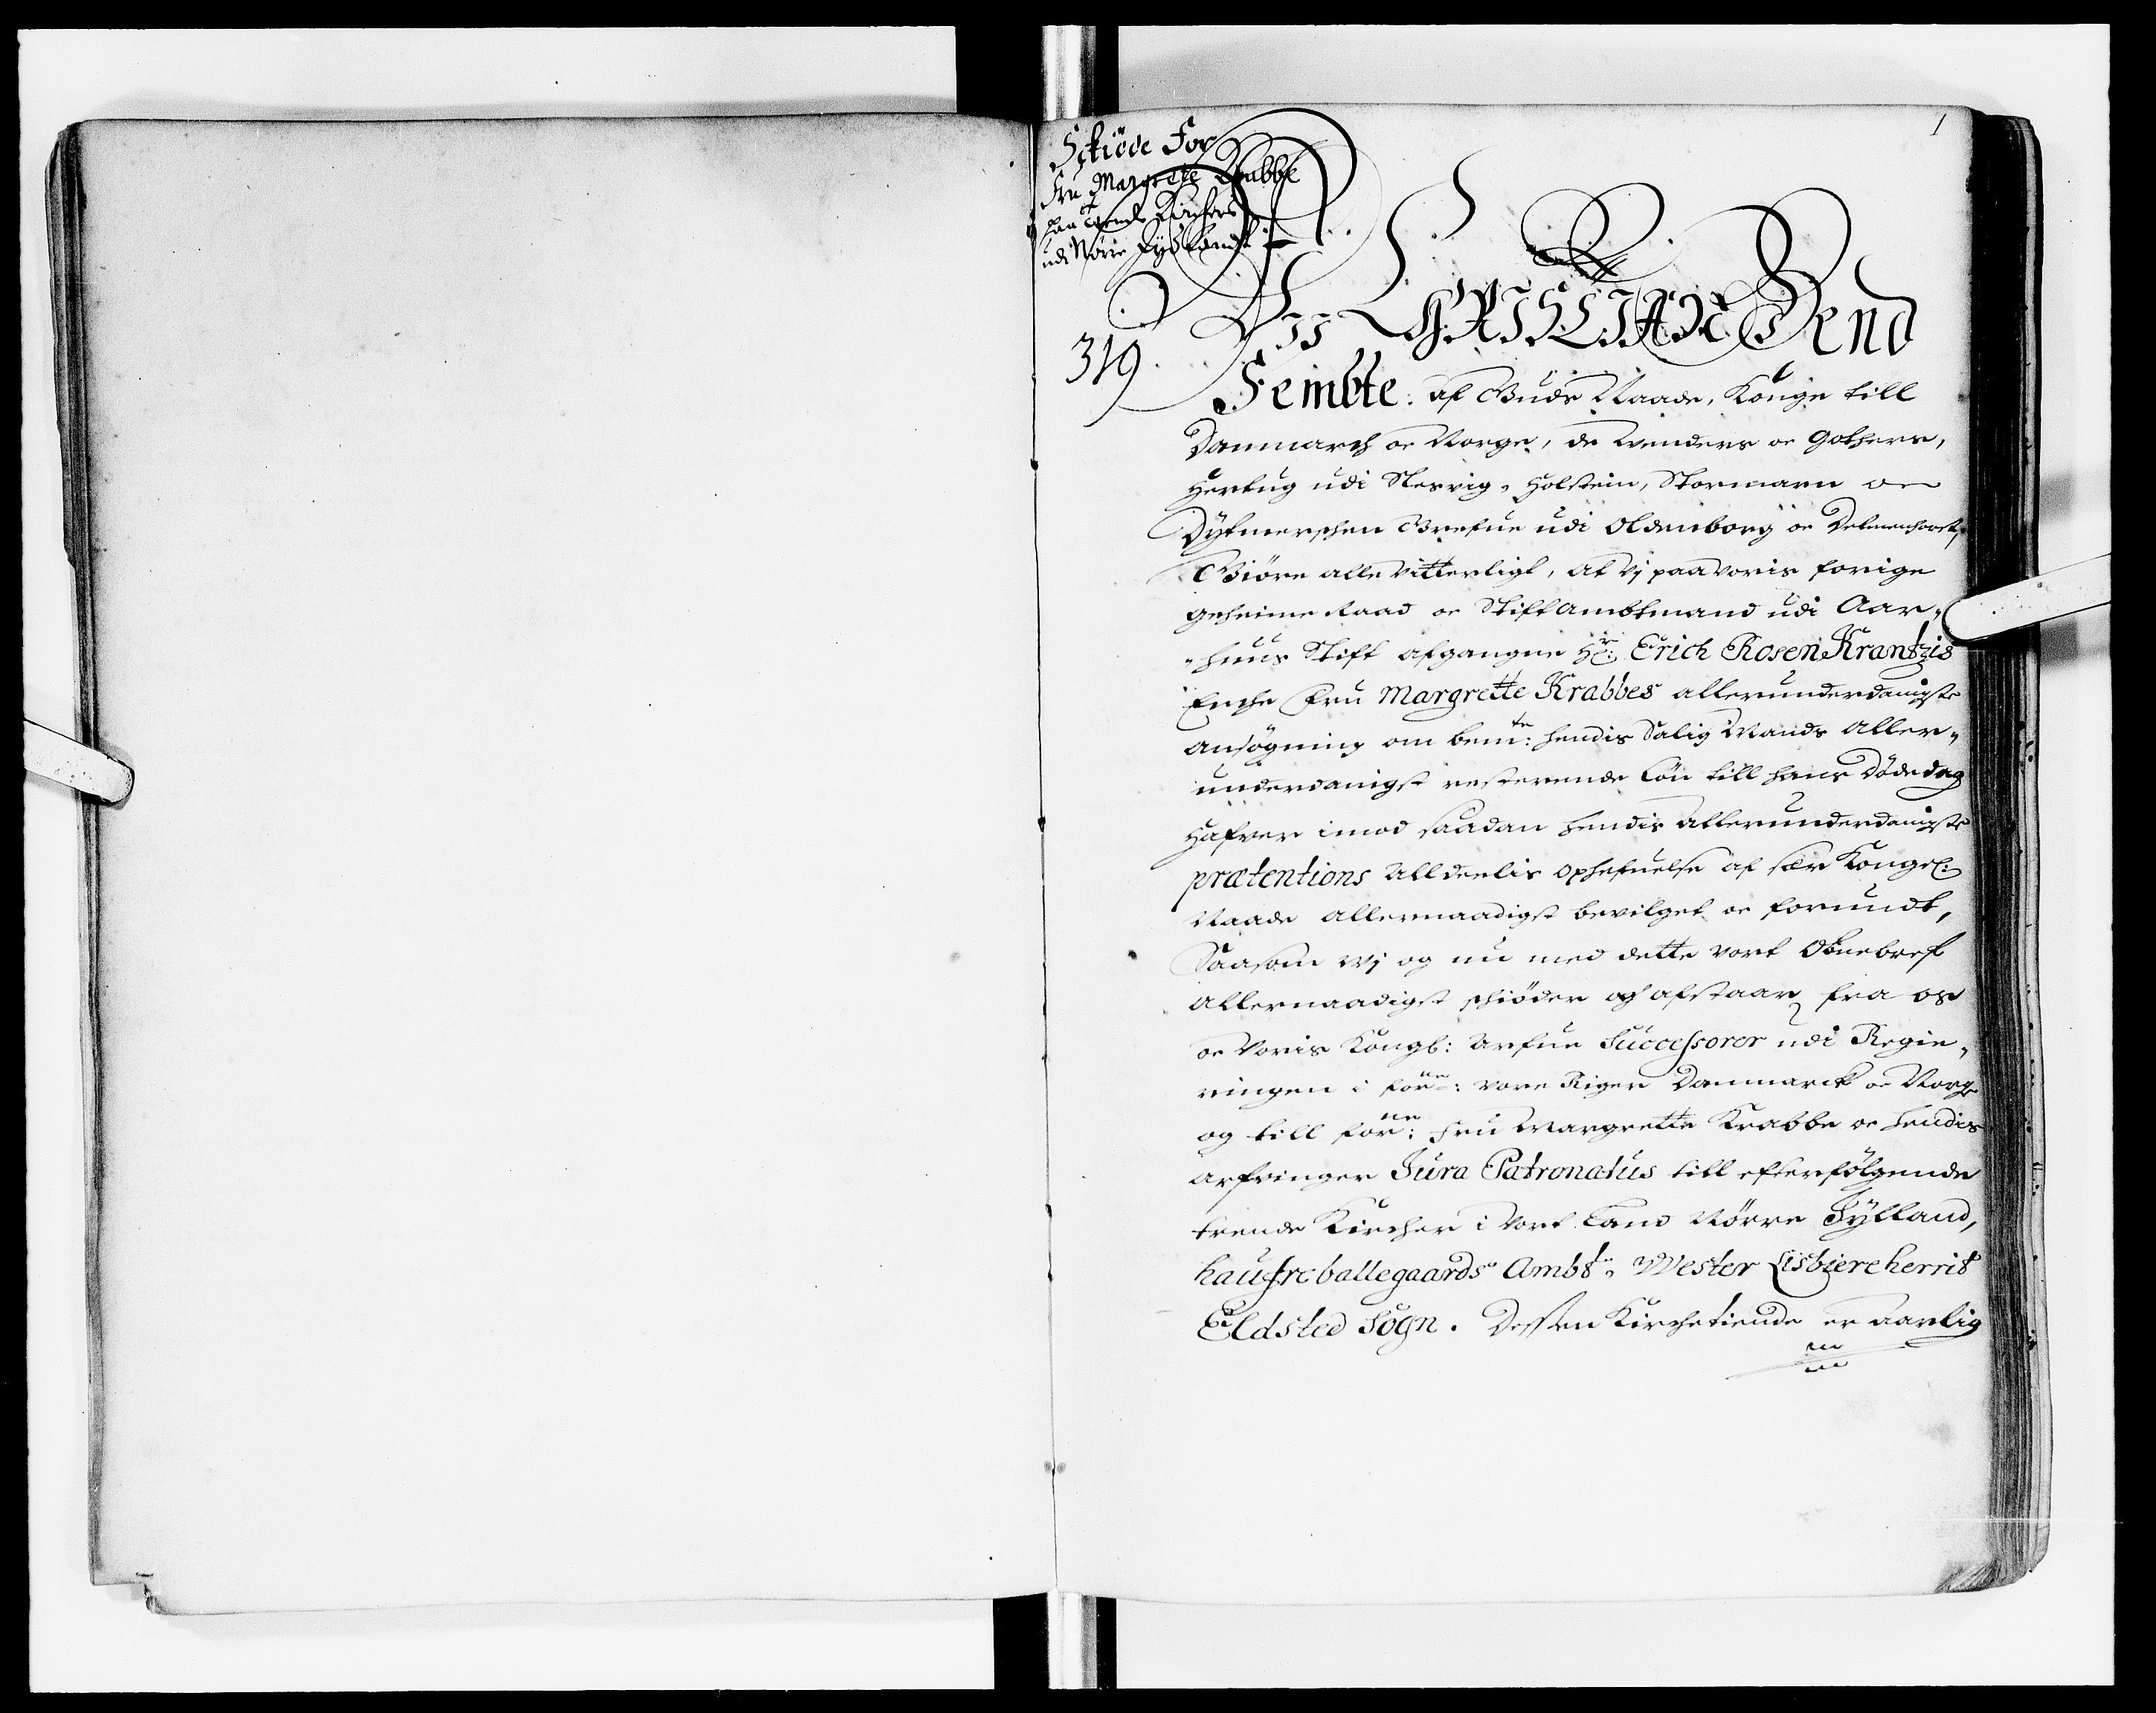 1
Skiöde For
Fru Margrete Krabbe
paa trende Kircher
udi Nörre Jydland
319
Vii CHRISTIAN Dend
Fembte. af Guds Naade, Konge till
Danmarch oc Norge, de Wenders oc Gothers,
Hertug udi Slesvig, Holstein, Stormarn oc
Dytmerschen Grefue udi Oldenborg oc Delmenhorst,
Giöre alle Vitterligt, at Vj paa Voris forige
Geheime Raad oc Stiftambtmand udi Aar-
huus Stift afgangne Hr: Erich RosenKrantzis
Enche Fru Margrette Krabbes allerunderdanigste
ansögning om bemte: hendis Salig Mands Aller-
underdanigst resterende Lön till hans Dödedag
Hafver imod saadan hendis Allerunderdanigste
prætentions Alldeelis ophefuelse af sær Kongel:
Naade allernaadigst bevilget oc forundt,
Saasom Wj og nu med dette Vort Obnebref
Allernaadigst schiöder og afstaar fra os
oc Voris Kongl: Arfue Successorer udi Regie-
ringen i forne: vore Riger Danmarck oc Norge
og till forne: Fru Margrette Krabbe oc hendis
Arfvinger Jura Patronatus till efterfölgende
trende Kircher i Vort Land Nörre Jylland,
haufreballegaards Ambt, Wester Lisbiere herrit
Eldsted Sogn. Dessen Kirchetiende er Aarlig